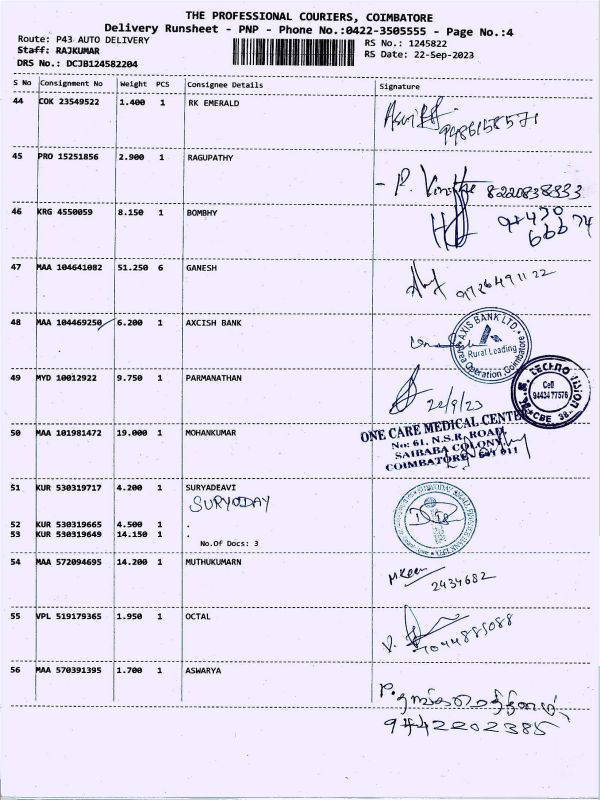 THE PROFESSIONAL COURIERS, COIMBATORE
Delivery Runsheet - PNP - Phone No.:0422-3505555 - Page No.:4
Route: P43 AUTO DELIVERY
RS No.: 1245822
Staff: RAJKUMAR
RS Date: 22-Sep-2023
DRS No.: DCJB124582204
S No Consignment No Weight PCS Consignee Details Signature
44 COK 23549522 1.400 1 RK EMERALD
9486158571
45 PRO 15251856 2.900 1 RAGUPATHY
8220838333
46 KRG 4550059 8.150 1 BOMBHY
47 MAA 104641082 51.250 6 GANESH
9726491122
48 MAA 104469250 6.200 1 AXCISH BANK
AXIS BANK LTD.
Rural Leading
Operation, Coimbatore
49 MYD 10012922 9.750 1 PARMANATHAN
Cell
94434 77576
CBE
22/9/23
50 MAA 101981472 19.000 1 MOHANKUMAR
ONE CARE MEDICAL CENTRE
No: 61, N.S.R. ROAD,
SAIBABA COLONY
COIMBATORE - 641 011
51 KUR 530319717 4.200 1 SURYADEAVI
SURYODAY
52 KUR 530319665 4.500 1 .
53 KUR 530319649 14.150 1 .
No.Of Docs: 3
54 MAA 572094695 14.200 1 MUTHUKUMARN
2434682
55 VPL 519179365 1.950 1 OCTAL
56 MAA 570391395 1.700 1 ASWARYA
9442202385